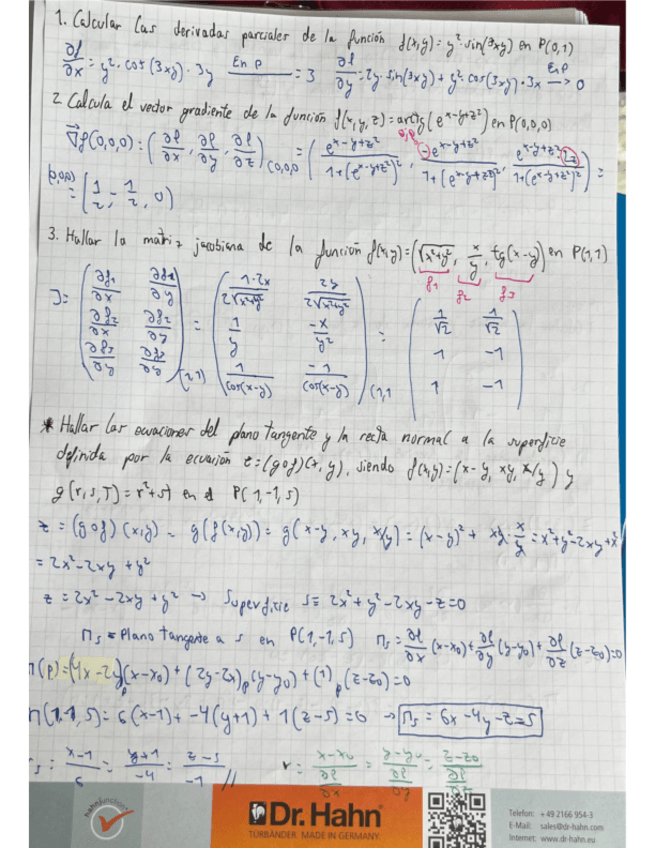 1. Calcular las derivadas parciales de la función f(x,y) = y²·sin(3xy) en P(0,1)
∂f/∂x = y²·cos(3xy)·3y En P = 3 ∂f/∂y = 2y·sin(3xy) + y²·cos(3xy)·3x En P → 0
2. Calcula el vector gradiente de la función f(x,y,z) = arctg(e^x-y+z²) en P(0,0,0)
∇f(0,0,0) = (∂f/∂x, ∂f/∂y, ∂f/∂z)(0,0,0) = (e^x-y+z²/1+(e^x-y+z²)², -e^x-y+z²/1+(e^x-y+z²)², e^x-y+z²·2z/1+(e^x-y+z²)²) =
(0,0,0) = (1/2, -1/2, 0)
3. Hallar la matriz jacobiana de la función f(x,y) = (√x²+y², x/y, tg(x-y)) en P(1,1)
f1 f2 f3
J = (∂f1/∂x ∂f1/∂y = (1·2x/2√x²+y² 2y/2√x²+y² = (1/√2 1/√2
∂f2/∂x ∂f2/∂y 1/y -x/y² 1 -1
∂f3/∂y ∂f3/∂y)(1,1) 1/cos(x-y) -1/cos(x-y))(1,1 1 -1)
* Hallar las ecuaciones del plano tangente y la recta normal a la superficie
definida por la ecuación z = (gof)(x,y), siendo f(x,y) = (x-y, xy, x/y) y
g(r,s,T) = r²+sT en el P(1,-1,5)
z = (gof)(x,y) = g(f(x,y)) = g(x-y, xy, x/y) = (x-y)² + xy·x/y = x²+y²-2xy+x²
= 2x²-2xy+y²
z = 2x²-2xy+y² → Superficie S ≡ 2x²+y²-2xy-z=0
πs = Plano tangente a s en P(1,-1,5) πs = ∂f/∂x (x-x0) + ∂f/∂y (y-y0) + ∂f/∂z (z-z0)=0
π(p) = (4x-2y)p(x-x0) + (2y-2x)p(y-y0) + (1)p(z-z0)=0
π(1,-1,5) = 6(x-1) + -4(y+1) + 1(z-5) = 0 → πs = 6x-4y-z=5
rs = x-1/6 = y+1/-4 = z-5/-1 // r = x-x0/∂f/∂x = y-y0/∂f/∂y = z-z0/∂f/∂z
Dr. Hahn®
TÜRBÄNDER MADE IN GERMANY
Telefon: +49 2166 954-3
E-Mail: sales@dr-hahn.com
Internet: www.dr-hahn.eu